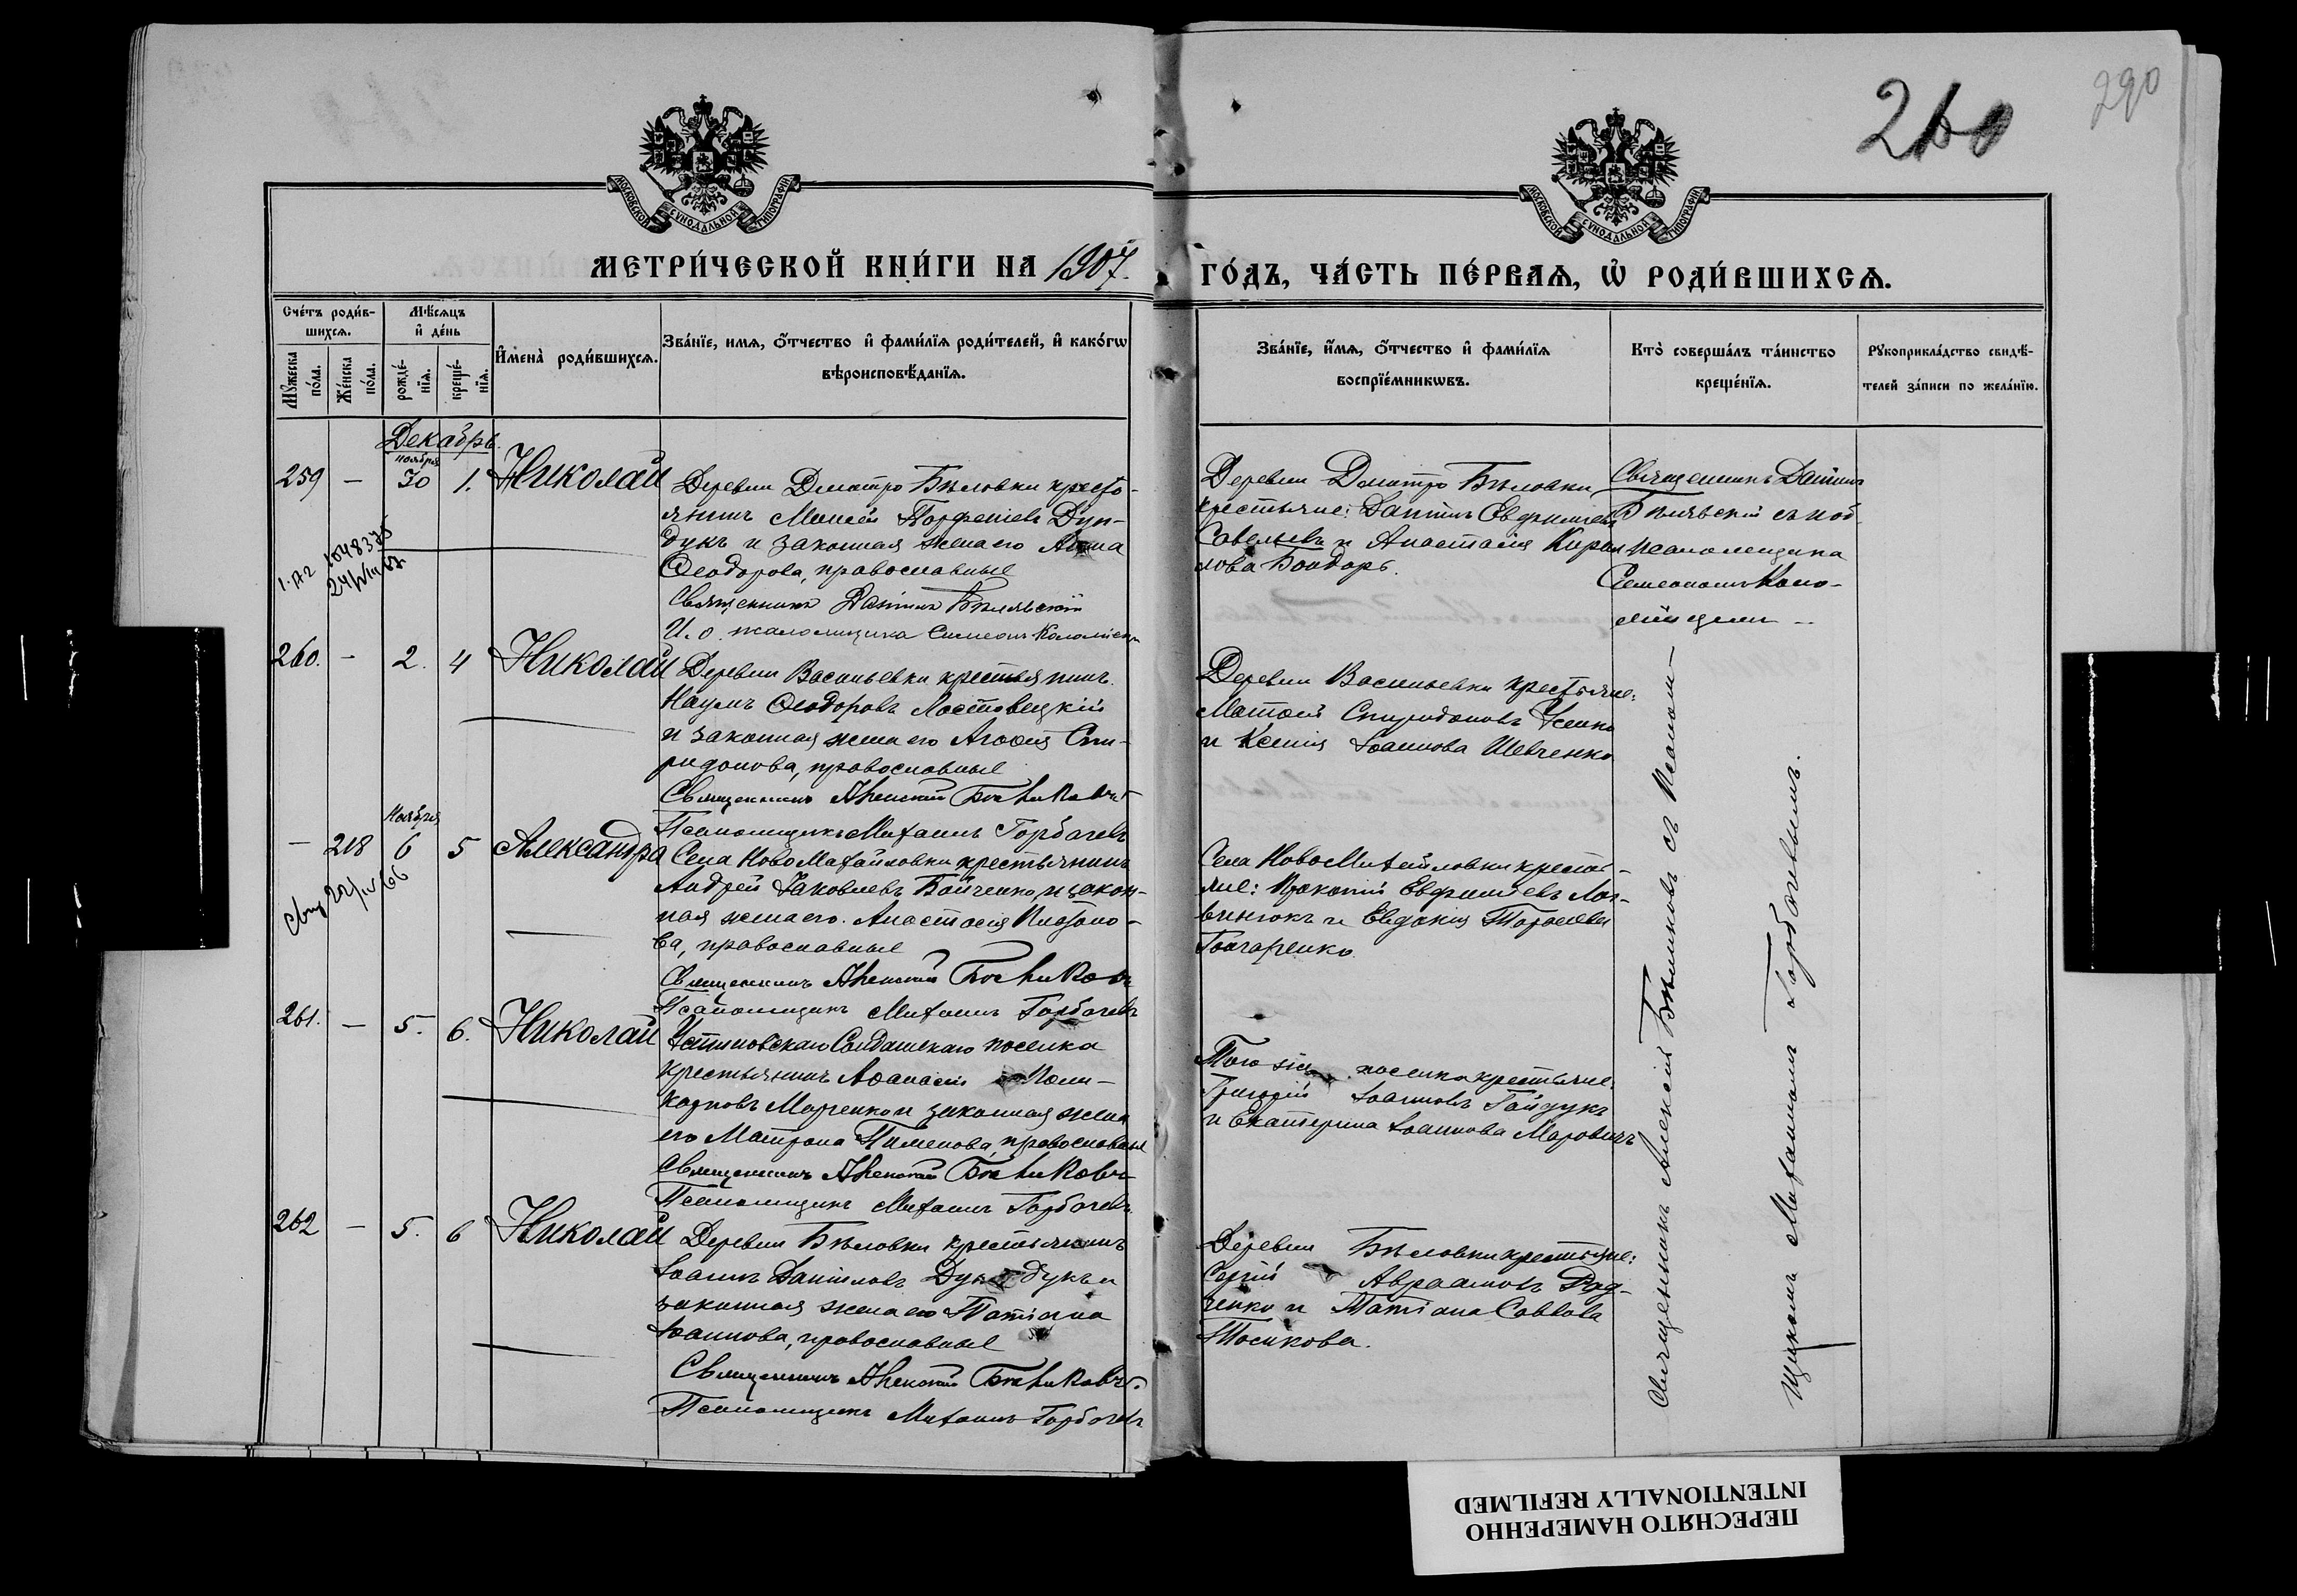 290
260
МОСКОВСКОЙ СѴНОДАЛЬНОЙ ТИПОГРАФІИ
МОСКОВСКОЙ СѴНОДАЛЬНОЙ ТИПОГРАФІИ
МЕТРИ́ЧЕСКОЙ КНИ́ГИ НА 1907. ГО́ДЪ, ЧА́СТЬ ПЕ́РВАѦ, Ѡ҆ РОДИ́ВШИХСѦ.
Сче́тъ роди́в-
шихсѧ.
Мꙋ́жеска по́ла.
Же́нска по́ла.
Мѣ́сѧцъ
и҆ де́нь
рожде́-
нїѧ.
креще́-
нїѧ.
И҆мена̀ роди́вшихсѧ.
Зва́нїе, имѧ, о҆́тчество и҆ фами́лїѧ роди́телей, и҆ како́гѡ
вѣроисповѣ́данїѧ.
Зва́нїе, и҆́мѧ, о҆́тчество и҆ фами́лїѧ
воспрїе́мникѡвъ.
Кто̀ соверша́лъ та́инство
креще́нїѧ.
Рꙋкоприкла́дство свидѣ́-
телей за́писи по жела́нїю.
Декабрь.
ноября
259 — 30 1. Николай
Деревни Дмитро Бѣловки кресть-
янинъ Моисей Парфеніевъ Дун-
дукъ и законная жена его Анна
Ѳеодорова, православные
Священникъ Даніилъ Бѣлявскій
И. о. псаломщика Симеонъ Коломіецъ
Деревни Дмитро Бѣловки
крестьяне: Даніилъ Евфиміевъ
Савельевъ и Анастасія Кирил
лова Бондарь.
Священникъ Даніилъ
Бѣлявскій съ и об
псаломщика
Симеономъ Коло-
мійцемъ
1048375
260. — 2. 4 Николай
Деревни Васильевки крестьянинъ
Наумъ Ѳеодоровъ Лостовецкій
и законная жена его Агаѳія Спи-
ридонова, православные
Священникъ Алексій Бѣликовъ
Псаломщикъ Михаилъ Горбачевъ
Деревни Васильевки крестьяне:
Матѳей Спиридоновъ Усенко
и Ксенія Іоаннова Шевченко
Ноября
— 218 6 5 Александра
22/IV 66
Села НовоМихайловки крестьянинъ
Андрей Іаковлевъ Бойченко, и закон-
ная жена его. Анастасія Платоно-
ва, православные
Священникъ Алексій Бѣликовъ
Псаломщикъ Михаилъ Горбачевъ
Села НовоМихайловки кресть-
яне: Прокопій Евфиміевъ Лог-
винюкъ и Евдокія Тарасіева
Гончаренко.
261. — 5. 6. Николай
Устиновскаго Солдатскаго поселка
крестьянинъ Аѳанасій Поли-
карповъ Марченко и законная жена
его Матрона Пименова, православные
Священникъ Алексій Бѣликовъ
Псаломщикъ Михаилъ Горбачевъ
Того же поселка крестьяне:
Григорій Іоанновъ Гайдукъ
и Екатерина Іоаннова Маровичъ
262 — 5. 6 Николай
Деревни Бѣловки крестьянинъ
Іоаннъ Даніиловъ Дундукъ и
законная жена его Татіана
Іоаннова, православные
Священникъ Алексій Бѣликовъ.
Псаломщикъ Михаилъ Горбачевъ
Деревни Бѣловки крестьяне:
Сергій Авраамовъ Руд-
ченко и Татіана Саввова
Носикова.
Священникъ Алексій Бѣликовъ съ Псалом-
щикомъ Михаиломъ Горбачевымъ.
ПЕРЕСНЯТО НАМЕРЕННО
INTENTIONALLY REFILMED